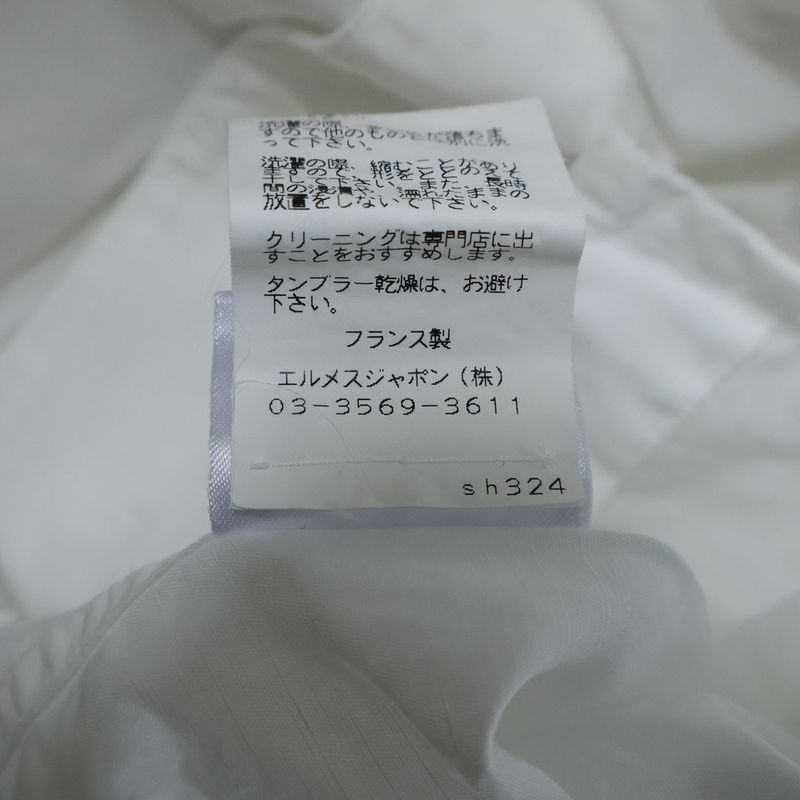 洗濯の際、
すので他のものと
って下さい。
洗濯の際、縮むことがあり
ますので、形をととのえて
干して下さい。また、長時
間の浸漬や、濡れたままの
放置をしないで下さい。
クリーニングは専門店に出
すことをおすすめします。
タンブラー乾燥は、お避け
下さい。
フランス製
エルメスジャポン(株)
03-3569-3611
sh324